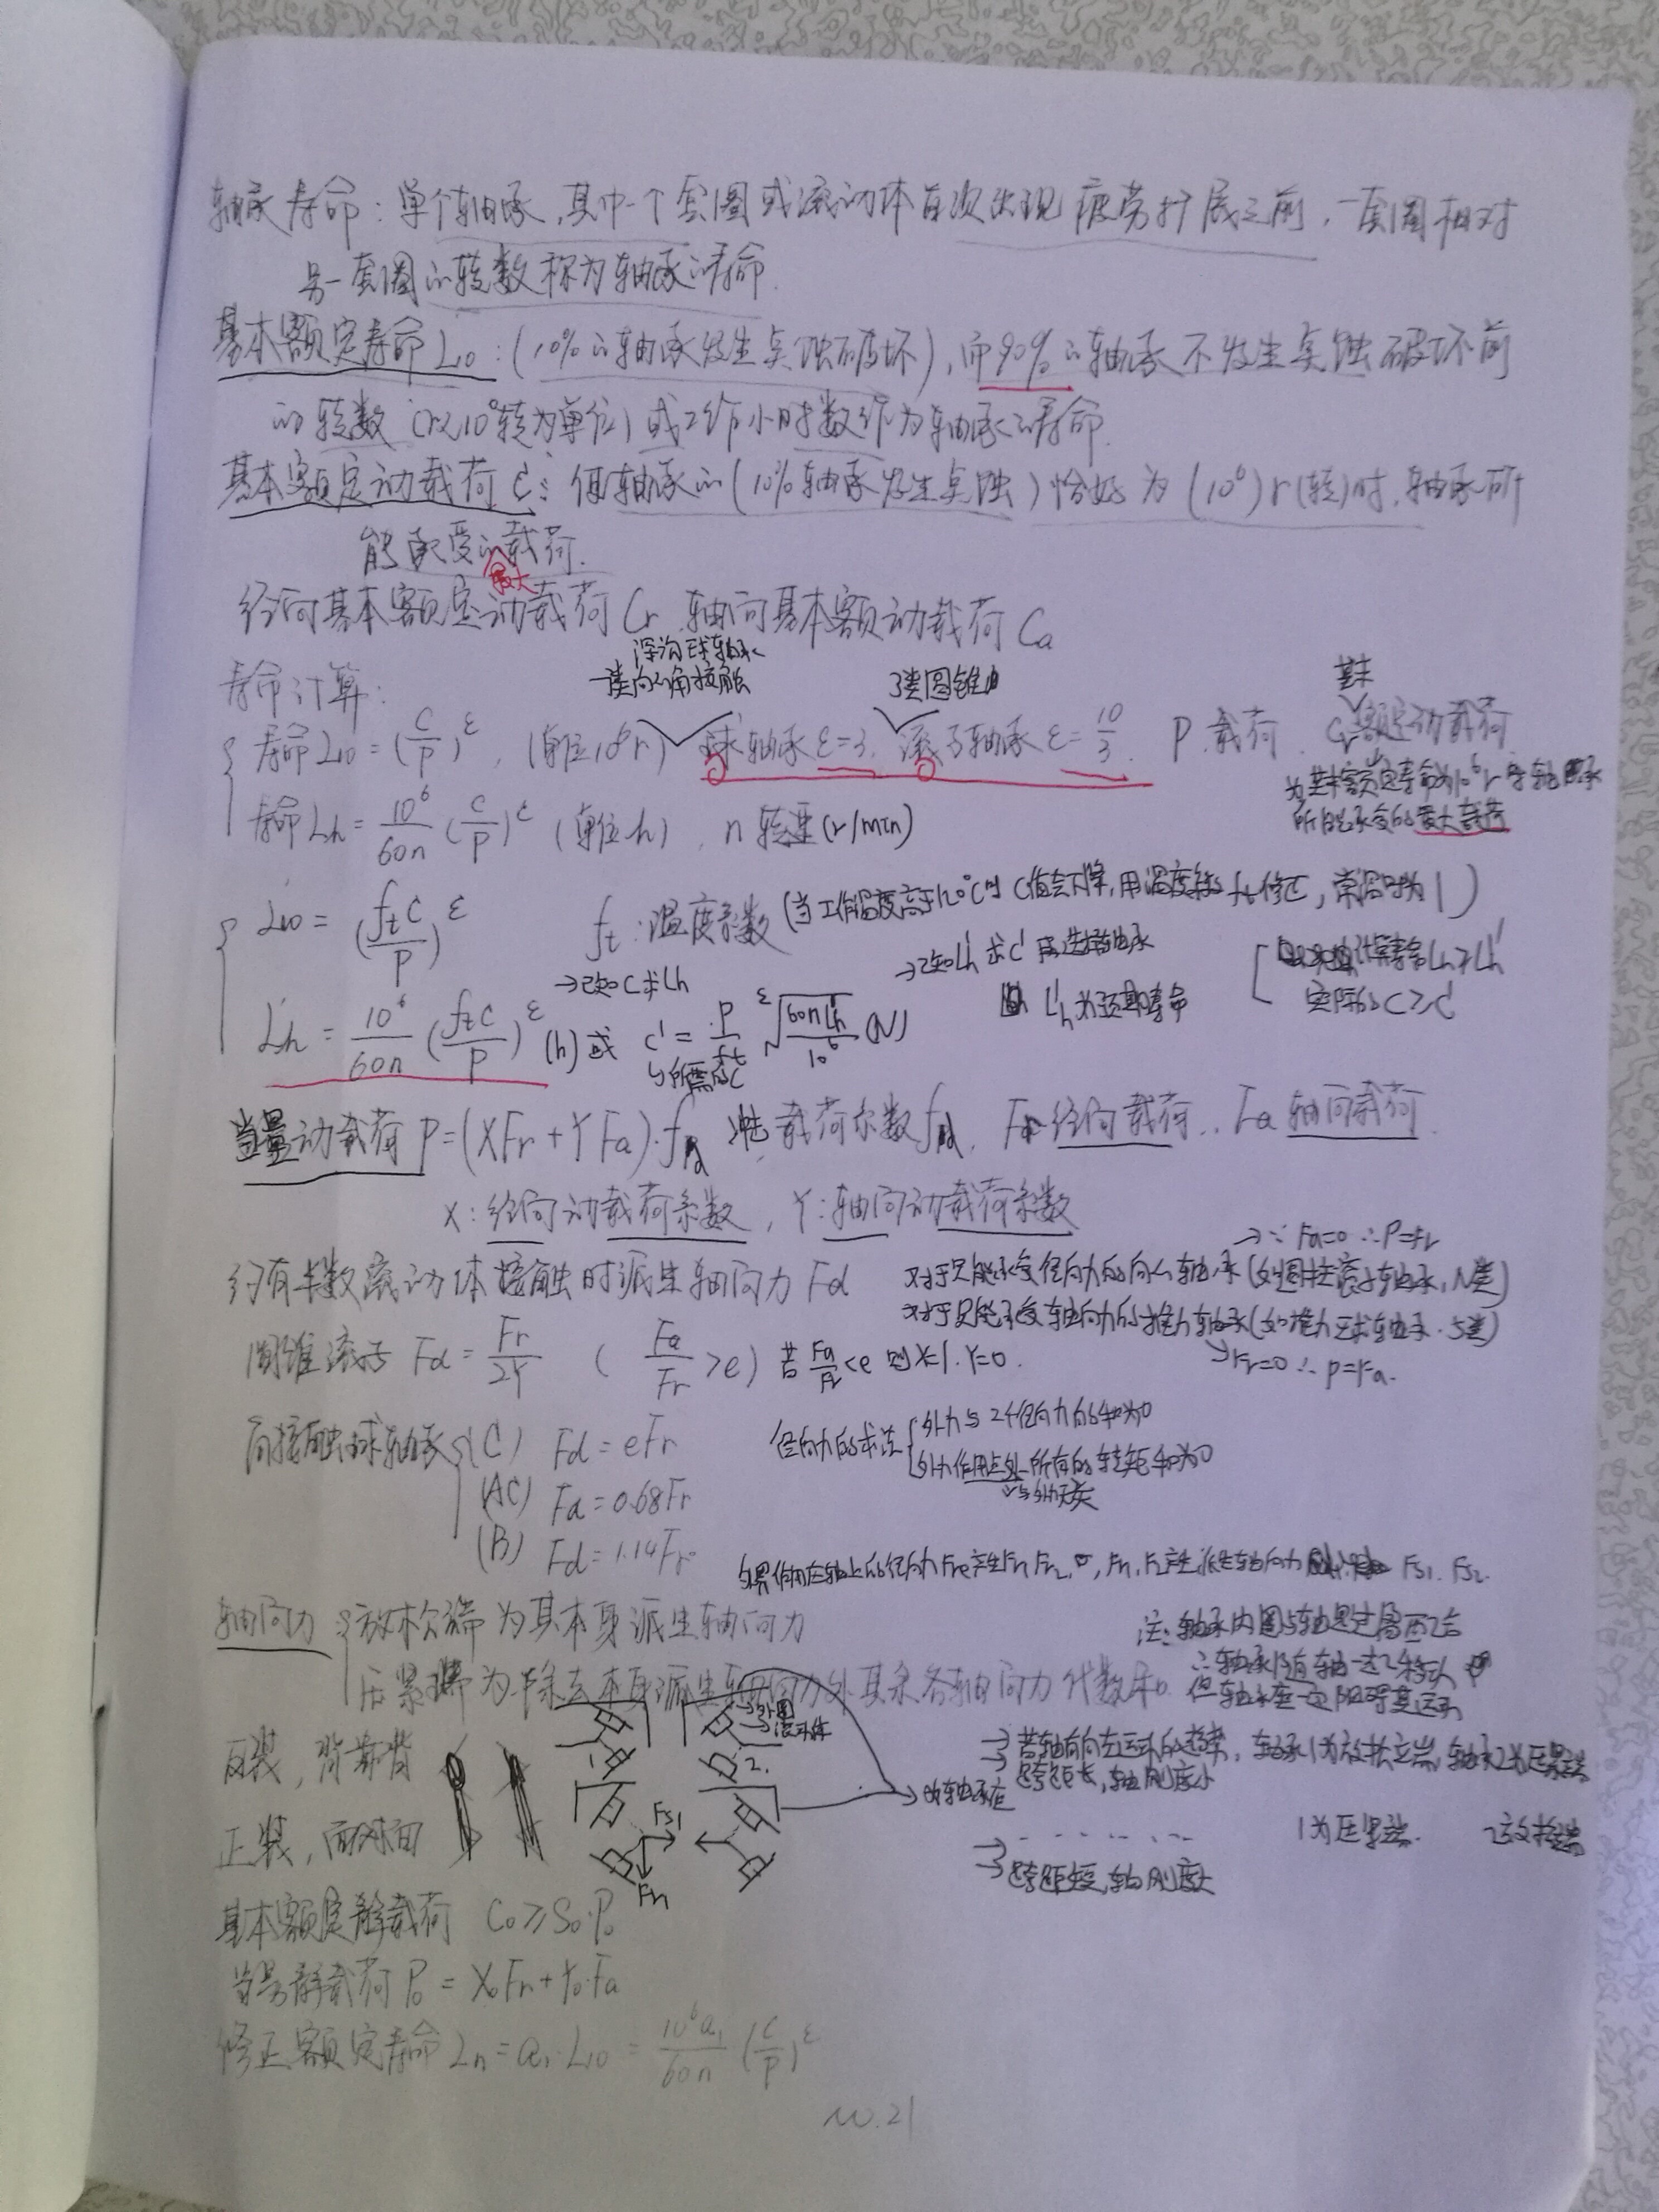 轴承寿命：单个轴承，其中一个套圈或滚动体首次出现疲劳扩展之前，一套圈相对
另一套圈的转数称为轴承的寿命.
基本额定寿命L10：(10%的轴承发生点蚀破坏)，而90%的轴承不发生点蚀破坏前
的转数(以10⁶转为单位)或工作小时数作为轴承的寿命.
基本额定动载荷C：使轴承的(10%轴承发生点蚀)恰好为(10⁶)r(转)时，轴承所
能承受的载荷.
最大
径向基本额定动载荷Cr 轴向基本额动载荷Ca
寿命计算：
深沟球轴承
角接触
3类圆锥
基本
寿命L10=(C/P)^ε，(单位10⁶r) 球轴承ε=3. 滚子轴承ε=10/3. P.载荷. C额定动载荷
为基本额定寿命为10⁶r时轴承
所能承受的最大载荷
寿命Lh=10⁶/60n (C/P)^ε (单位h)，n转速(r/min)
L10=(ftC/P)^ε ft：温度系数(当工作温度高于120°C时C值会下降，用温度系数ft修正，常温时为1)
→已知C求Lh
→已知Lh'求C'再选择轴承
Lh'为预期寿命
计算寿命Lh≥Lh'
实际的C≥C'
Lh=10⁶/60n (ftC/P)^ε (h)或 C'=P/ft ^ε√(60nLh'/10⁶) (N)
↳所需的C
当量动载荷P=(XFr+YFa)·fd 载荷系数fd. Fr径向载荷.. Fa轴向载荷.
X：径向动载荷系数，Y：轴向动载荷系数
→∵Fa=0 ∴P=Fr
约有半数滚动体接触时派生轴向力Fd
对于只能承受径向力的向心轴承(如圆柱滚子轴承，N类)
对于只能承受轴向力的推力轴承(如推力球轴承.5类)
→Fr=0∴P=Fa.
圆锥滚子 Fd=Fr/2Y (Fa/Fr>e) 若Fa/Fr<e 则X=1.Y=0.
角接触球轴承 (C) Fd=eFr
(AC) Fd=0.68Fr
(B) Fd=1.14Fr
径向力的求法 外力与2个径向力的和为0
外力作用点处所有的转矩和为0
↳与外力无关
外界作用在轴上的径向力Fre产生Fr1 Fr2，Fr1，Fr2产生派生轴向力 Fs1. Fs2.
轴向力 放松端为其本身派生轴向力
压紧端为除去本身派生轴向力外其余各轴向力代数和.
注：轴承内圈与轴是过盈配合
∴轴承随着轴一起移动
但轴承座一定阻碍其运动
反装，背靠背
外圈
滚动体
1.
2.
→若轴有向左运动的趋势，轴承1为放松端，轴承2为压紧端
→跨距长，轴刚度小
→为轴承座
正装，面对面
Fs1
Fr1
→. . . . . . 1为压紧端. 2放松端
→跨距短，轴刚度大
基本额定静载荷 C0≥S0·P0
当量静载荷P0=X0Fr+Y0·Fa
修正额定寿命Ln=a1·L10=10⁶a1/60n (C/P)^ε
W.21